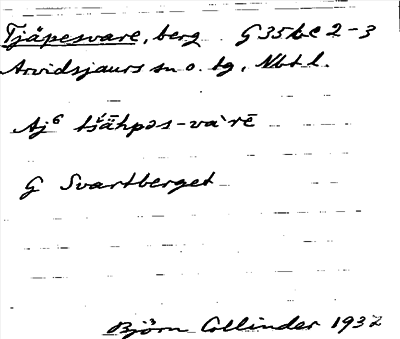 Tjåpesvare, berg G 35 b c 2-3
Arvidsjaurs sn o. tg, Nbt l.
Aj⁶ tšāhpəs-va`rē
G Svartberget
Björn Collinder 1932